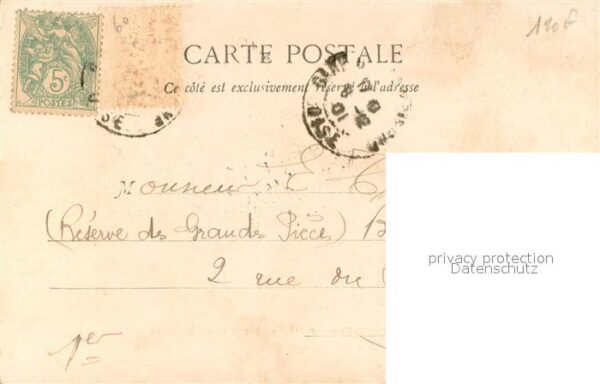 60
120F
5c
POSTES
CARTE POSTALE
Ce côté est exclusivement réservé à l'adresse
Monsieur E
(Réserve des Grandes Pièces) B
2 rue du
privacy protection
Datenschutz
1er